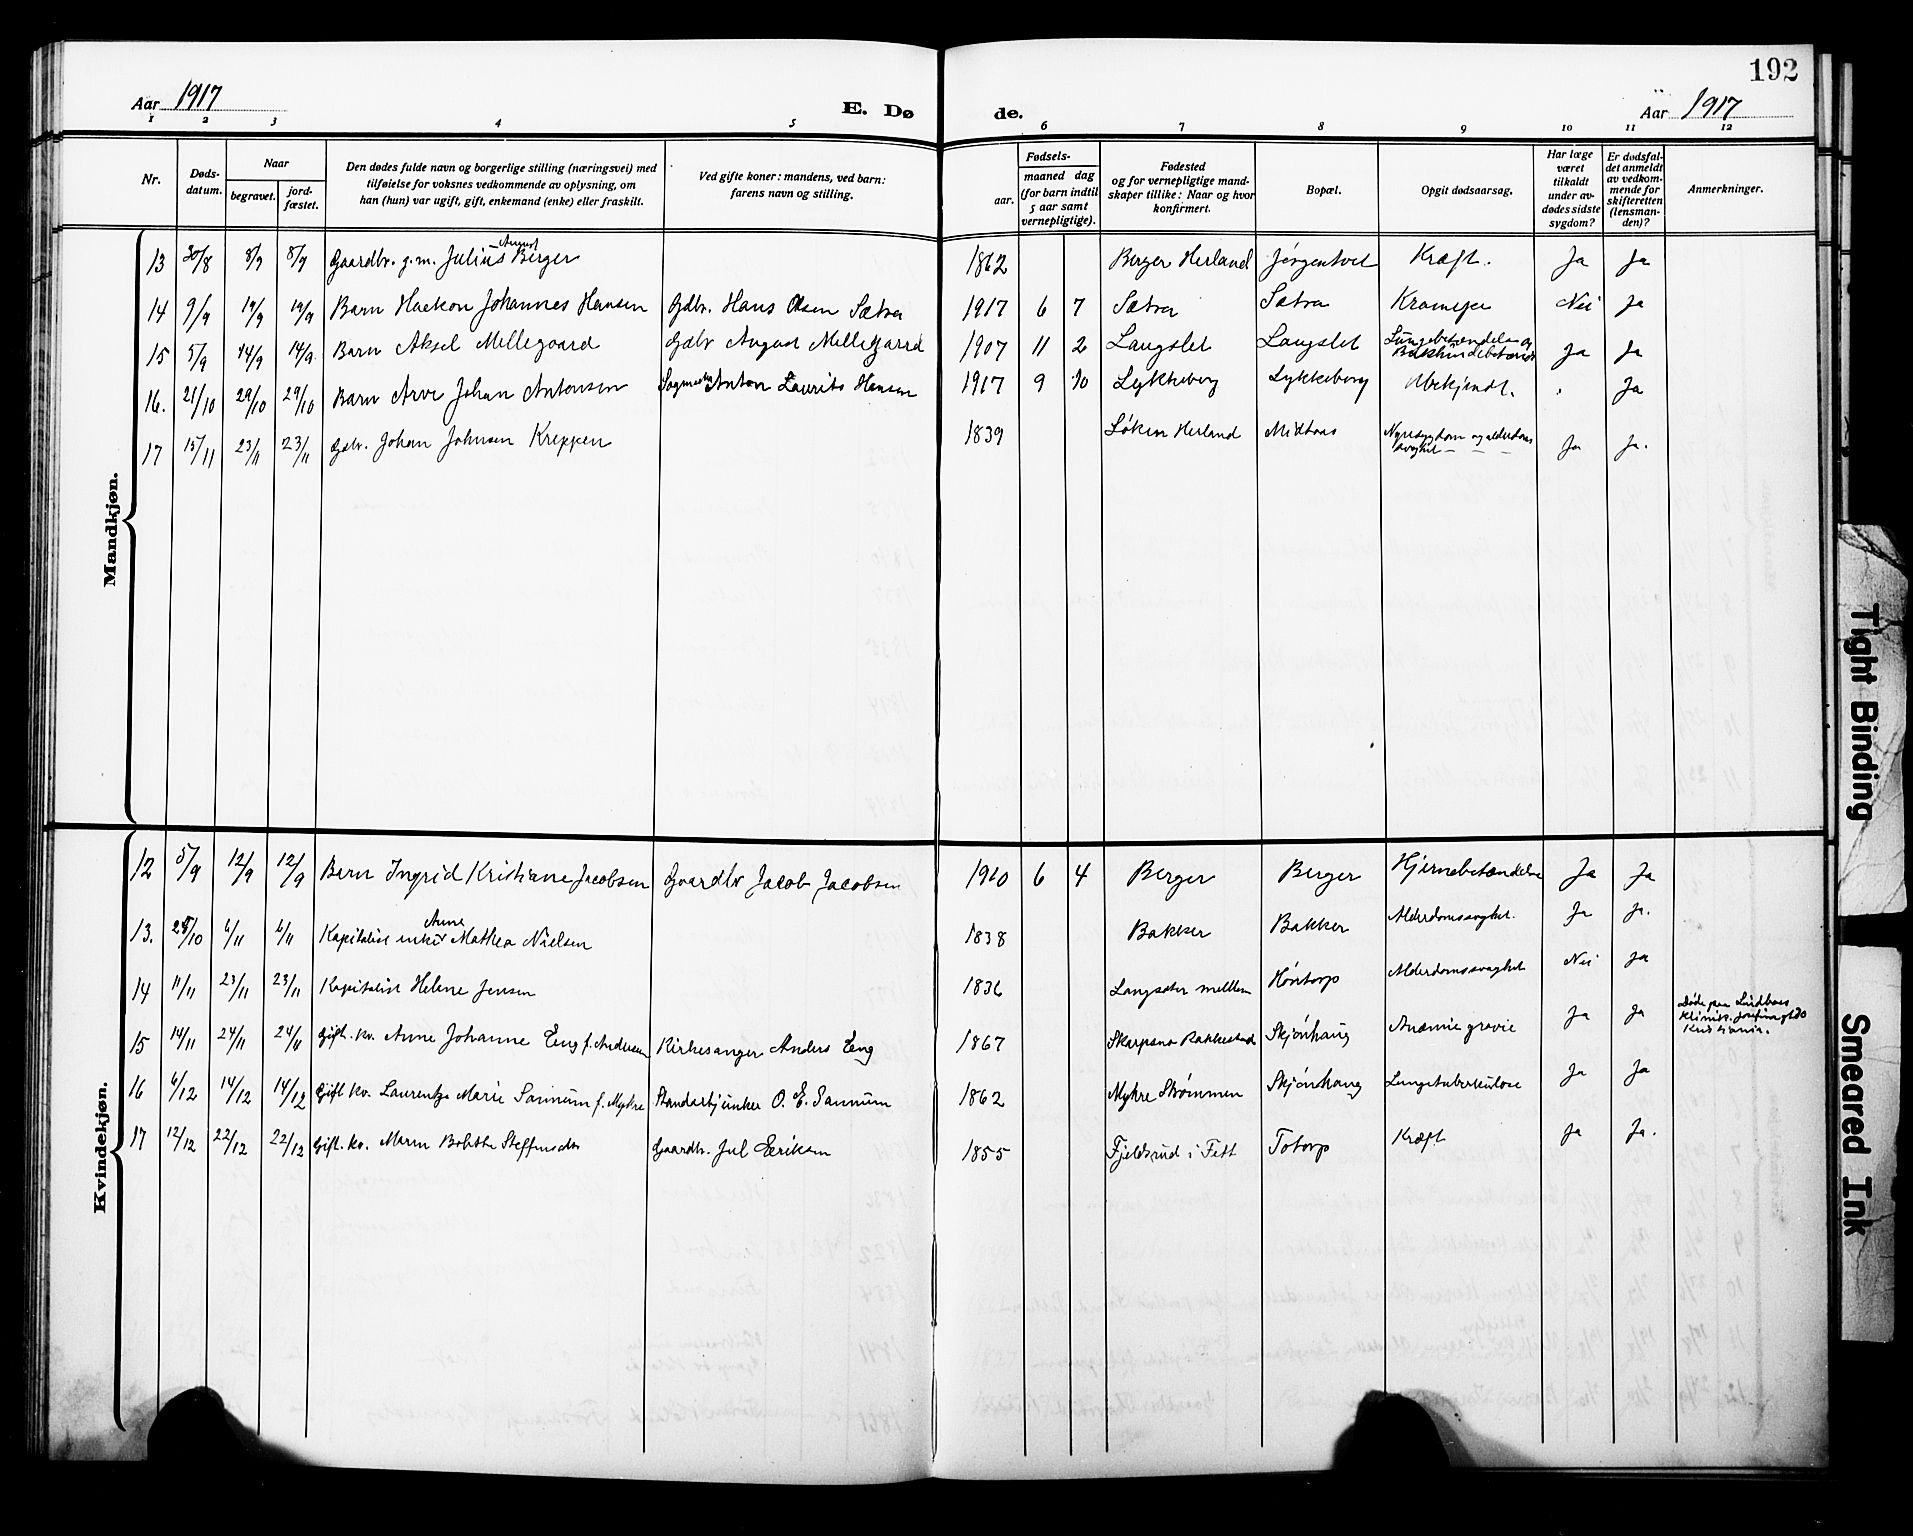 192
Aar 1917
E. Dø
de.
Aar 1917
1 2 3 4 5 6 7 8 9 10 11 12
Nr.
Døds-
datum.
Naar
begravet.
jord-
fæstet.
Den dødes fulde navn og borgerlige stilling (næringsvei) med
tilføielse for voksnes vedkommende av oplysning, om
han (hun) var ugift, gift, enkemand (enke) eller fraskilt.
Ved gifte koner: mandens, ved barn:
farens navn og stilling.
Fødsels-
aar.
maaned dag
(for barn indtil
5 aar samt
vernepligtige).
Fødested
og for vernepligtige mand-
skaper tillike: Naar og hvor
konfirmert.
Bopæl.
Opgit dødsaarsag.
Har læge
været
tilkaldt
under av-
dødes sidste
sygdom?
Er dødsfal-
det anmeldt
av vedkom-
mende for
skifteretten
(lensman-
den)?
Anmerkninger.
Mandkjøn.
August
13 30/8 8/9 8/9 Gaardbr. g.m. Julius Berger 1862 Berger Herland Jørgentvet Kræft. Ja Ja
14 9/9 19/9 19/9 Barn Haakon Johannes Hansen Gdbr. Hans Olsen Sætra 1917 6 7 Sætra Sætra Krampe Nei Ja
15 5/9 14/9 14/9 Barn Aksel Mellegaard Gdbr August Mellegaard 1907 11 2 Langslet Langslet Lungebetændelse og Ja Ja
16. 21/10 29/10 29/10 Barn Arve Johan Antonsen Anton Laurits Hansen 1917 9 30 Lykkeberg Lykkeberg Ubekjendt. Ja
17 15/11 23/11 23/11 Gdbr. Johan Johnsen Kreppen 1839 Løken Herland Nyresygdom og alderdoms
svaghet Ja Ja.
Kvindekjøn.
12 5/9 12/9 12/9 Barn Ingrid Kristiane Jacobsen Gaardbr Jacob Jacobsen 1910 6 4 Berger Berger Hjernebetændelse Ja Ja
Anne
13. 28/10 6/11 6/11 Kapitalist enke Mathea Nielsen 1838 Bakker Bakker Alderdomssvaghet. Ja Ja.
14 11/11 23/11 23/11 Kapitalist Helene Jensen 1836 Langsæter mellem Høntorp Alderdomssvaghet Nei Ja
15 14/11 24/11 24/11 Gift. kv. Anne Johanne Eng f. Andersen Kirkesanger Anders Eng 1867 Rakkestad Skjønhaug Anæmie gravie Ja Ja
Døde paa Lindboes
Klinik.
Kristiania.
16 6/12 14/12 14/12 Gift kv. Laurentze Marie Sannum f. Mykre Standartjunker O. E. Sannum 1862 Mykre Strømmen Skjønhaug Lungetuberkulose Ja Ja
17 12/12 22/12 22/12 Gift. kv. Maren Bolette Steffensdtr Gaardbr. Jul Eriksen 1855 Fjeldsrud i Fett Totorp Kræft Ja Ja.
Tight Binding
Smeared Ink